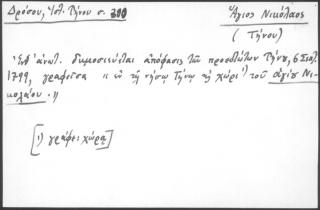 Δρόσου, Ἱστ. Τήνου σ. 300
Ἅγιος Νικόλαος
(Τήνου)
Ἐνθ' ἀνωτ. δημοσιεύεται ἀπόφασις τῶν προεστώτων Τήνου, 6 Σεπ.
1799, γραφεῖσα «ἐν τῇ νήσῳ Τήνῳ τῇ χώρι¹) τοῦ ἁγίου Νι-
κολάου.»
[1) γράφε: χώρᾳ]